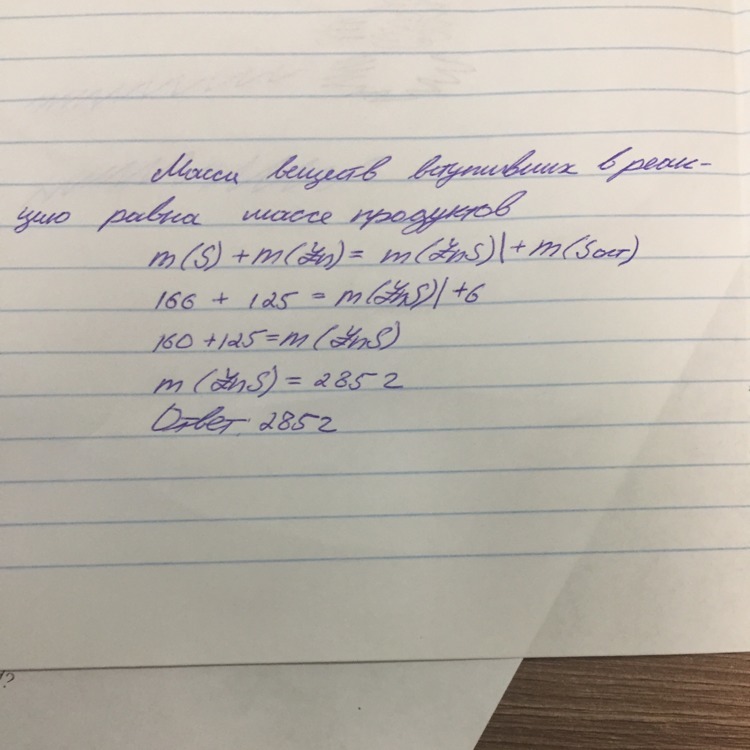 Масса веществ вступивших в реак-
цию равна массе продуктов
m(S) + m(Zn) = m(ZnS)| + m(Sост)
166 + 125 = m(ZnS)| + 6
160 + 125 = m(ZnS)
m(ZnS) = 285 г
Ответ: 285 г
?